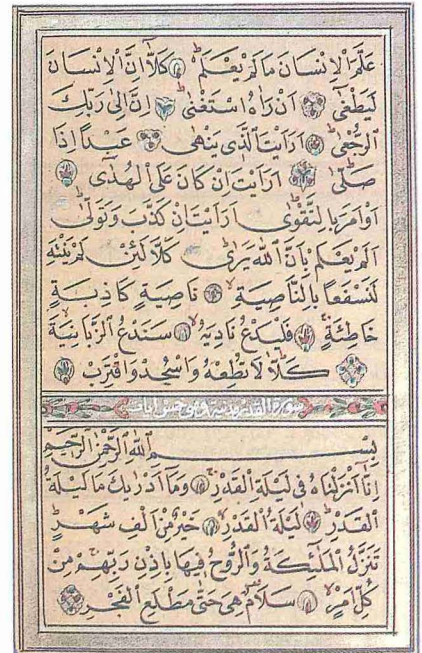 عَلَّمَ الْاِنْسَانَ مَالَمْ يَعْلَمْ كَلَّٓا اِنَّ الْاِنْسَانَ
لَيَطْغٰى اَنْ رَاٰهُ اسْتَغْنٰى اِنَّ اِلٰى رَبِّكَ
الرُّجْعٰى اَرَاَيْتَ الَّذٖى يَنْهٰى عَبْدًا اِذَا
صَلّٰى اَرَاَيْتَ اِنْ كَانَ عَلَى الْهُدٰٓى
اَوْ اَمَرَ بِالتَّقْوٰى اَرَاَيْتَ اِنْ كَذَّبَ وَتَوَلّٰى
اَلَمْ يَعْلَمْ بِاَنَّ اللّٰهَ يَرٰى كَلَّا لَئِنْ لَمْ يَنْتَهِ
لَنَسْفَعًا بِالنَّاصِيَةِ نَاصِيَةٍ كَاذِبَةٍ
خَاطِئَةٍ فَلْيَدْعُ نَادِيَهُ سَنَدْعُ الزَّبَانِيَةَ
كَلَّا لَا تُطِعْهُ وَاسْجُدْ وَاقْتَرِبْ
سورة القدر مدنية وهى خمس ايات
بِسْمِ اللّٰهِ الرَّحْمٰنِ الرَّحٖيمِ
اِنَّٓا اَنْزَلْنَاهُ فٖى لَيْلَةِ الْقَدْرِ وَمَٓا اَدْرٰيكَ مَا لَيْلَةُ
الْقَدْرِ لَيْلَةُ الْقَدْرِ خَيْرٌ مِنْ اَلْفِ شَهْرٍ
تَنَزَّلُ الْمَلٰٓئِكَةُ وَالرُّوحُ فٖيهَا بِاِذْنِ رَبِّهِمْ مِنْ
كُلِّ اَمْرٍ سَلَامٌ هِىَ حَتّٰى مَطْلَعِ الْفَجْرِ